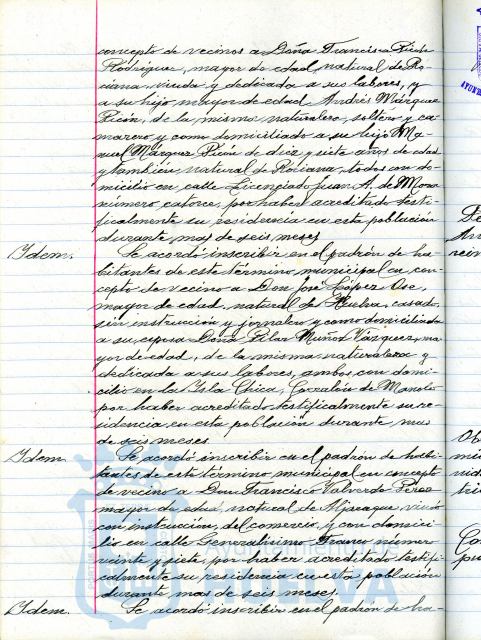 concepto de vecinos a Doña Francisca Picón
Rodríguez, mayor de edad, natural de Ro-
ciana, viuda y dedicada a sus labores, y
a su hijo mayor de edad, Andrés Márquez
Picón, de la misma naturaleza, soltero y ca-
marero, y como domiciliado a su hijo Ma-
nuel Márquez Picón de diez y siete años de edad
y también natural de Rociana, todos con do-
micilio en calle Licenciado Juan A. de Mora
número catorce, por haber acreditado testi-
ficalmente su residencia en esta población
durante mas de seis meses.
Idem.
Se acordó inscribir en el padrón de ha-
bitantes de este término municipal en con-
cepto de vecino a Don José López
mayor de edad, natural de Huelva, casado,
sin instrucción y jornalero y como domiciliada
a su esposa Doña Pilar Muñoz Vázquez, ma-
yor de edad, de la misma naturaleza y
dedicada a sus labores, ambos con domi-
cilio en la Isla Chica, Corralón de Manolo
por haber acreditado testificalmente su re-
sidencia en esta población durante mas
de seis meses.
Idem.
Se acordó inscribir en el padrón de habi-
tantes de este término municipal en concepto
de vecino a Don Francisco Valverde Pérez
mayor de edad, natural de Aljaraque, viudo
con instrucción, del comercio, y con domici-
lio en calle Generalísimo Franco número
veinte y siete, por haber acreditado testifi-
calmente su residencia en esta población
durante mas de seis meses.
Idem.
Se acordó inscribir en el padrón de ha-